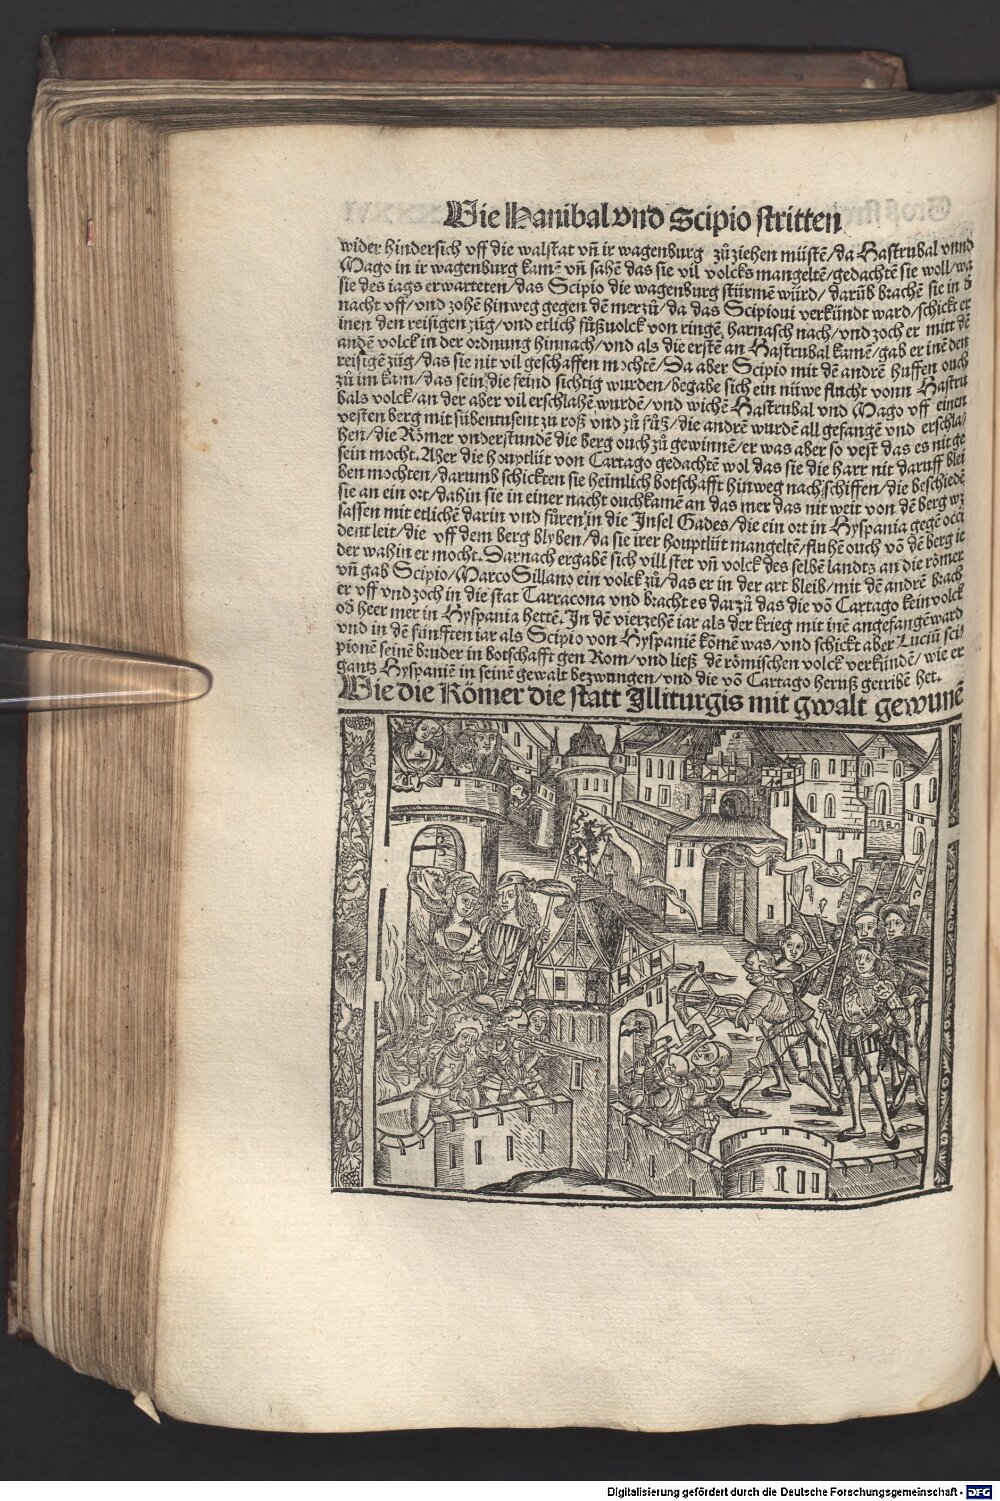 Wie Hanibal vnd Scipio stritten
wider hindersich vff die walstat vñ ir wagenburg zů ziehen müstē/da Hastrubal vnnd
Mago in ir wagenburg kamē vñ sahē das sie vil volcks mangeltē/gedachtē sie woll/wa
sie des iags erwarteten/das Scipio die wagenburg stürmē würd/darūb brachē sie in d
nacht vff/vnd zohē hinweg gegen dē mer zů/da das Scipioni verkündt ward/schickt er
inen den reisigen züg/vnd etlich fůßuolck von ringē harnasch nach/vnd zoch er mitt dē
andē volck in der ordnung hinnach/vnd als die erstē an Hastrubal kamē/gab er inē den
reisigē züg/das sie nit vil geschaffen mochtē/Da aber Scipio mit dē andrē huffen ouch
zů im kam/das sein die feind sichtig wurden/begabe sich ein nüwe flucht vonn Hastru
bals volck/an der aber vil erschlahē wurdē/vnd wichē Hastrubal vnd Mago vff einen
vesten berg mit sübentusent zu roß vnd zů fůß/die andrē wurdē all gefangē vnd erschla/
hen/die Römer vnderstundē die berg ouch zů gewinnē/er was aber so vest das es nit ge
sein mocht. Aber die houptlüt von Cartago gedachtē wol das sie die harr nit daruff blei
ben mochten/darumb schickten sie heimlich botschafft hinweg nach schiffen/die beschiedē
sie an ein ort/dahin sie in einer nacht ouch kamē an das mer das nit weit von dē berg wz
sassen mit etlichē darin vnd fůren in die Insel Gades/die ein ort in Hyspania gegē occi
dent leit/die vff dem berg blyben/da sie irer houptlüt mangeltē/fluhē ouch võ dē berg ie
der wahin er mocht. Darnach ergabē sich vill stet vñ volck des selbē landts an die römer
vñ gab Scipio/Marco Sillano ein volck zů/das er in der art bleib/mit dē andrē brach
er vff vnd zoch in die stat Tarracona vnd bracht es darzů das die võ Cartago kein volck
oď heer mer in Hyspania hettē. In dē vierzehē iar als der krieg mit inē angefangē ward
vnd in dē fünfften iar als Scipio von Hyspaniē kōmē was/vnd schickt aber Luciū sci/
pionē seinē bruder in botschafft gen Rom/vnd ließ dē römischen volck verkündē/wie er
gantz Hyspaniē in seinē gewalt bezwungen/vnd die võ Cartago heruß getribē het.
Wie die Römer die statt Illiturgis mit gwalt gewunē
Digitalisierung gefördert durch die Deutsche Forschungsgemeinschaft - DFG